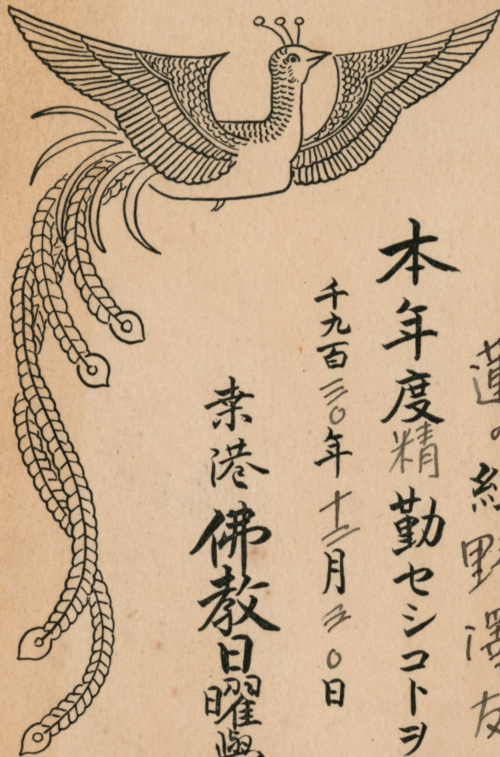 蓮の組 野澤友
本年度精勤セシコトヲ
千九百三〇年十二月三〇日
桒港佛教日曜學